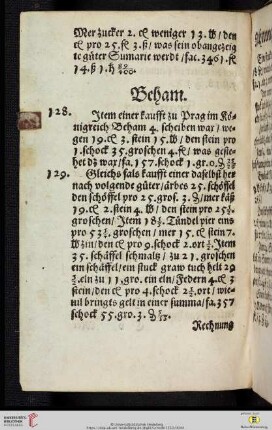 Mer zucker 2. ℔ weniger 13. ℔/ den
℔ pro 25. fl 3. ß/ was sein obangezeig
te güter Sumarie werdt/ fac. 3461. fl
14. ß 1. h 89/400.
Beham.
128. Item einer kaufft zu Prag im Kö-
nigreich Beham 4. scheiben wax/ we-
gen 19. ℔ 3. stein 15. ℔/ den stein pro
1. schock 35. groschen 4. / was geste-
het dz wax/ fa. 157. schock 1. gr. 0.
129. Gleichs fals kaufft einer daselbst her
nach volgende güter/ ärbes 25. schöffel
den schöffel pro 25. gros. 3. / mer käß
19. ℔ 2. stein 4. ℔/ den stein pro 25
groschen/ Item 18 Tündel pier eins
pro 53 groschen/ mer 15. ℔ stein 7.
℔ zin/ den ℔ pro 9. schock 2. ort Item
35. schäffel schmaltz/ zu 21. groschen
ein schäffel/ ein stuck graw tuch helt 29
ein zu 11. gro. ein eln/ Federn 4. ℔ 3
stein/ den ℔ pro 4. schock 2 ort/ wie-
uil bringts gelt in einer summa/ fa. 357
schock 55. gro. 3.
Rechnung